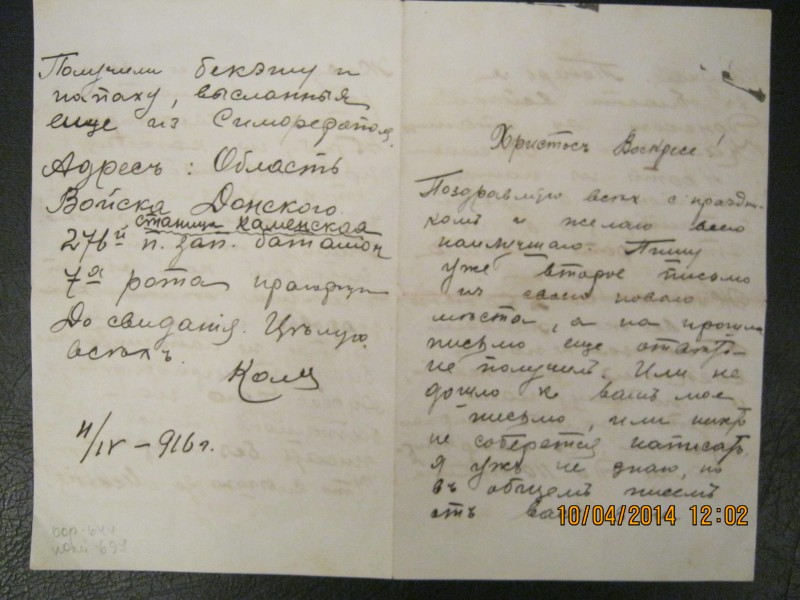 Получили бекешу и
папаху, высланныя
еще из Симферополя.
Адресъ: Область
Войска Донского
станица Каменская
276й п. зап. баталион
7ая рота прапорщик
До свиданія. Цѣлую
всѣхъ.
Коля
11/IV – 916 г.
Христосъ Воскресе!
Поздравляю всѣх с праздни-
комъ и желаю всего
наилучшаго. Пишу
уже второе письмо
из своего новаго
мѣста, а на прошлое
письмо еще отвѣта
не получилъ. Или не
дошло к вамъ мое
письмо, или никто
не соберется написать
я ужъ не знаю, но
въ общемъ писемъ
отъ
10/04/2014 12:02